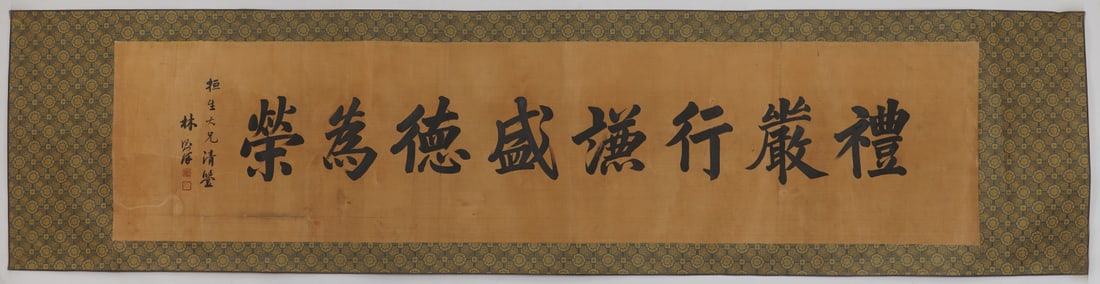 禮嚴行謙盛德為榮
桓生大兄清鑒
林